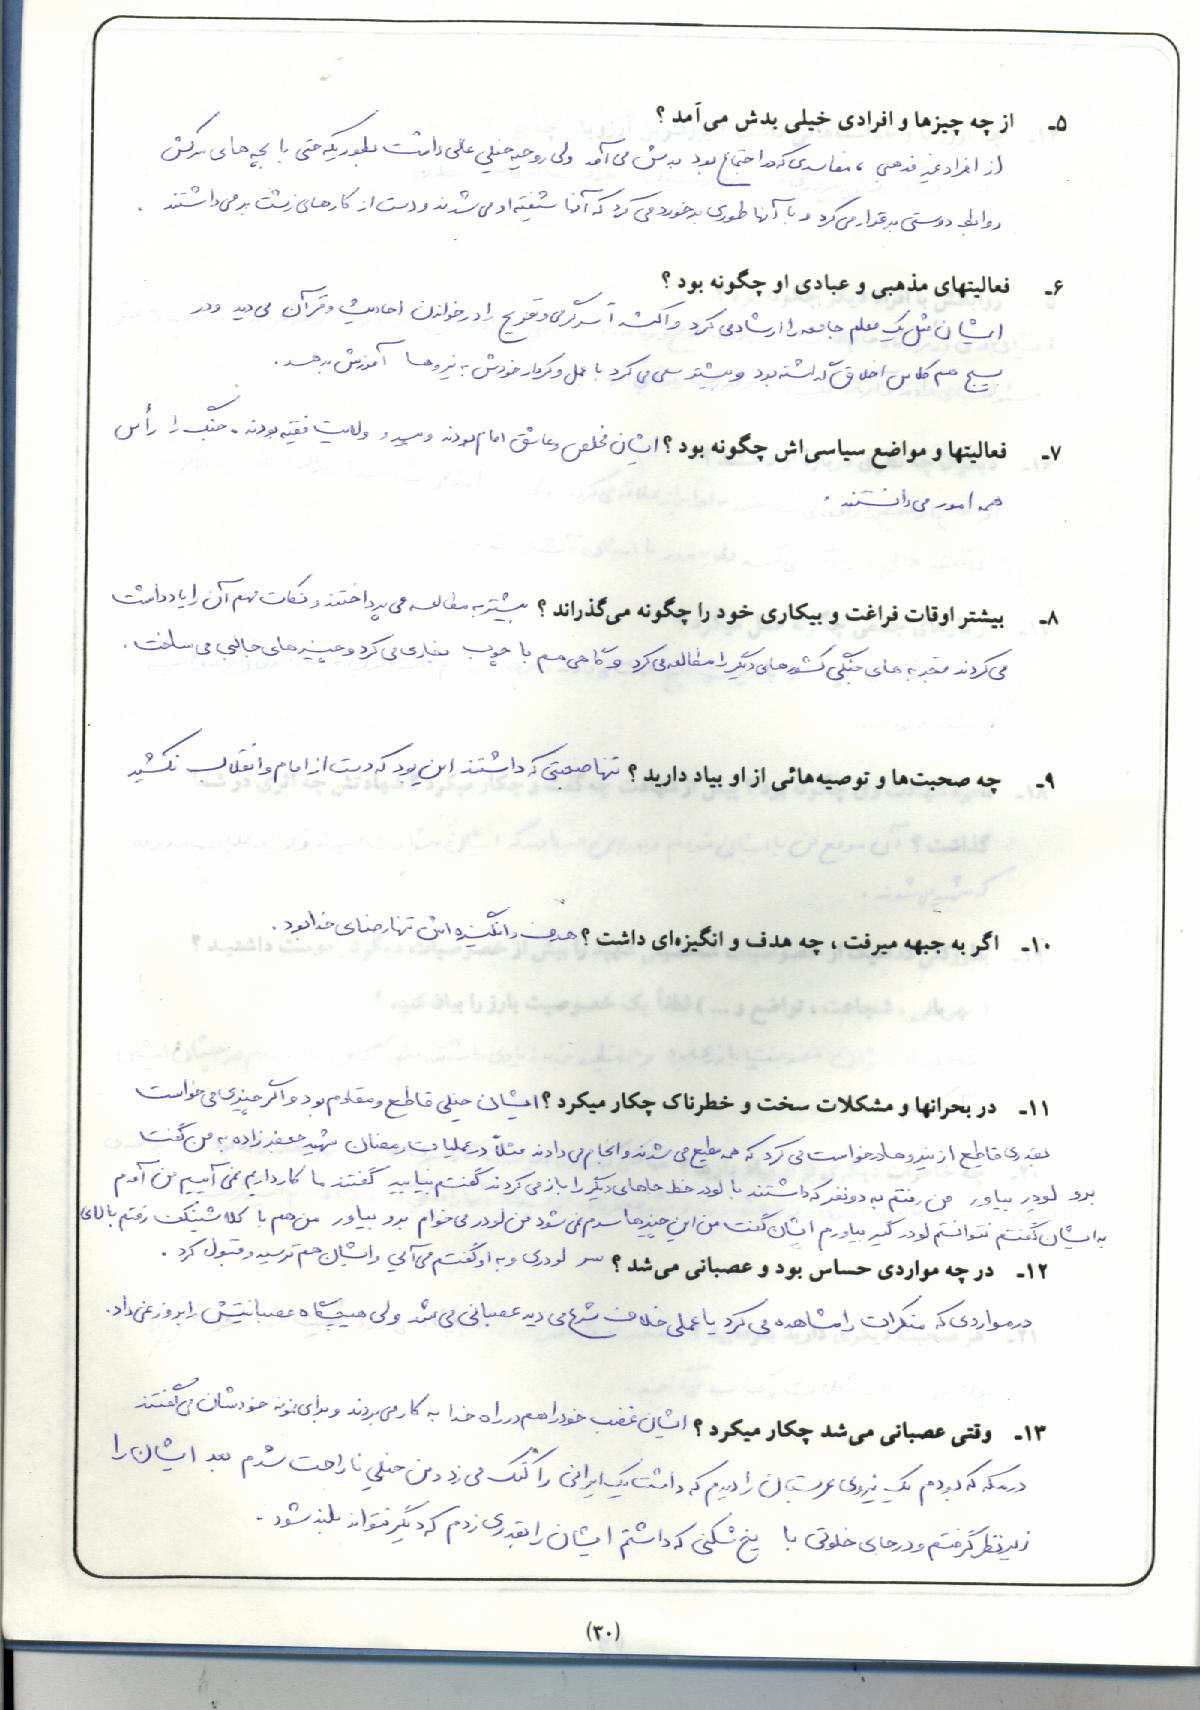 ۵ـ از چه چیزها و افرادی خیلی بدش می‌آمد ؟
از افراد غیر مذهبی ، مفاسدی که در اجتماع بود بدش می آمد ولی روحیه خیلی عالی داشت بطوریکه حتی با بچه های سرکش
روابط دوستی برقرار می کرد و با آنها طوری برخورد می کرد که آنها شیفته او می شدند و دست از کارهای زشت بر می داشتند .
۶ـ فعالیتهای مذهبی و عبادی او چگونه بود ؟
ایشان مثل یک معلم جامعه را ارشاد می کرد و اکثراً سرگرمی و تفریح را در خواندن احادیث و قرآن می دید و در
بسیج هم کلاس اخلاق گذاشته بود و بیشتر سعی می کرد با عمل و کردار خودش به نیروها آموزش بدهد .
۷ـ فعالیتها و مواضع سیاسی‌اش چگونه بود ؟ ایشان مخلص و عاشق امام بودند و پیرو ولایت فقیه بودند . جنگ را رأس
همه امور می دانستند .
۸ـ بیشتر اوقات فراغت و بیکاری خود را چگونه می‌گذراند ؟ بیشتر به مطالعه می پرداختند و نکات مهم آن را یادداشت
می کردند تجربه های جنگی کشورهای دیگر را مطالعه می کرد و گاهی هم با چوب نجاری می کرد و چیزهای جالبی می ساخت .
۹ـ چه صحبت‌ها و توصیه‌هائی از او بیاد دارید ؟ تنها صحبتی که داشتند این بود که دست از امام و انقلاب نکشید
۱۰ـ اگر به جبهه میرفت ، چه هدف و انگیزه‌ای داشت ؟ هدف و انگیزه اش تنها رضای خدا بود .
۱۱ـ در بحرانها و مشکلات سخت و خطرناک چکار میکرد ؟ ایشان خیلی قاطع و مقاوم بود و اگر چیزی می خواست
بقدری قاطع از نیروها درخواست می کرد که همه مطیع می شدند و انجام می دادند مثلاً در عملیات رمضان شهید جعفرزاده به من گفت
برو لودر بیاور من رفتم به دو نفر که داشتند با لودر خط جاهای دیگر را باز می کردند گفتم بیایید گفتند ما کار داریم نمی آییم من آمدم
به ایشان گفتم نتوانستم لودر گیر بیاورم ایشان گفت من این چیزها سرم نمی شود من لودر می خوام برو بیاور من هم با کلاشینکف رفتم بالای
۱۲ـ در چه مواردی حساس بود و عصبانی می‌شد ؟ سر لودری و به او گفتم می آیی و ایشان هم ترسید و قبول کرد .
در مواردی که منکرات را مشاهده می کرد یا عملی خلاف شرع می دید عصبانی می شد ولی هیچگاه عصبانیتش را بروز نمی داد .
۱۳ـ وقتی عصبانی می‌شد چکار میکرد ؟ ایشان غضب خود را هم در راه خدا به کار می بردند و برای نمونه خودشان می گفتند
در مکه که بودم یک نیروی عربستان را دیدم که داشت یک ایرانی را کتک می زد و من خیلی ناراحت شدم بعد ایشان را
زیر نظر گرفتم و در جای خلوتی با یخ شکنی که داشتم ایشان را بقدری زدم که دیگر نتواند بلند شود .
(۳۰)